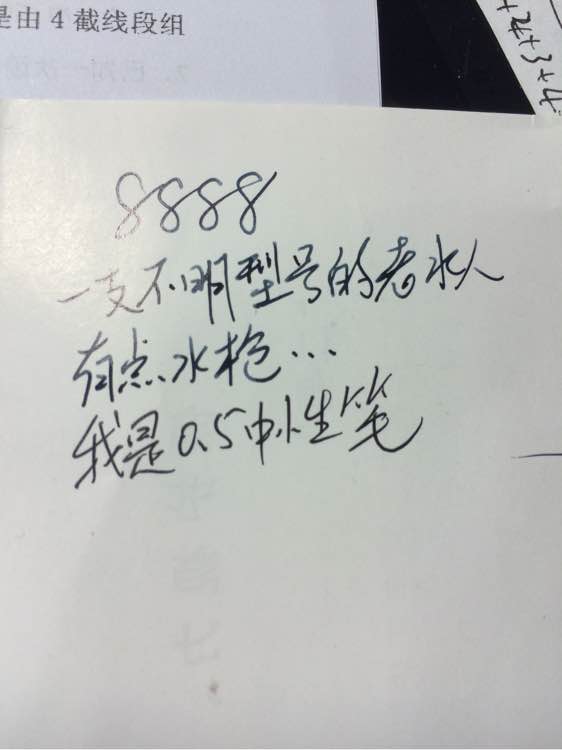 是由4截线段组
+2+3+4
8888
一支不明型号的老水人
有点水枪…
我是0.5中性笔